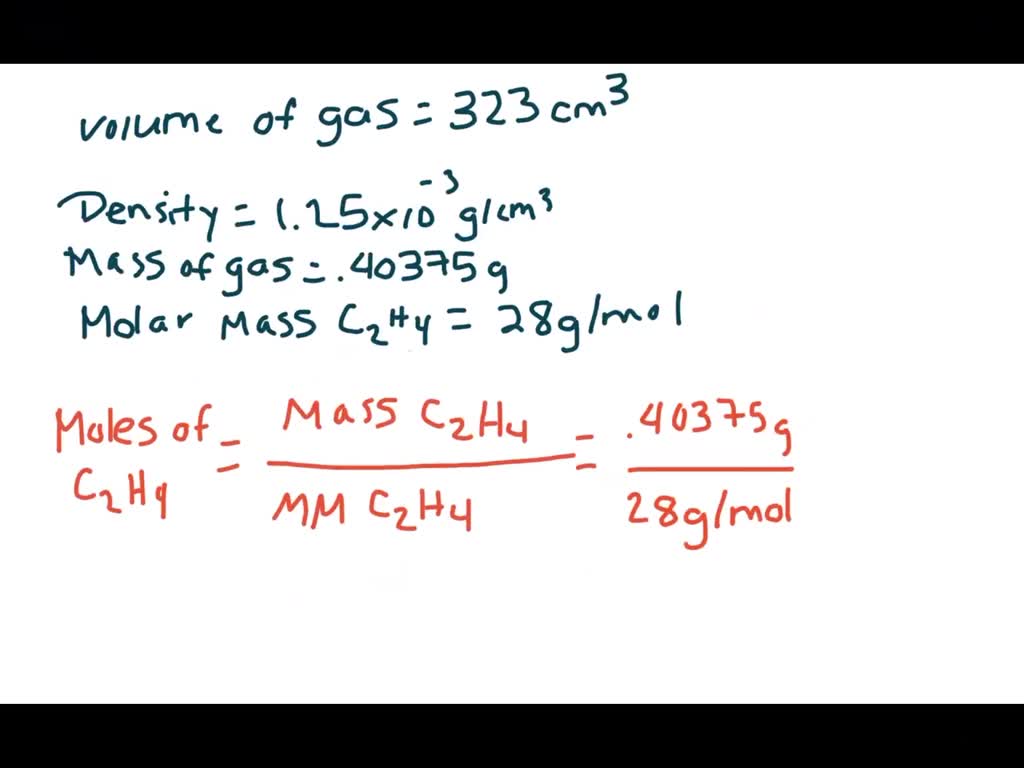 volume of gas = 323 cm³
Density = 1.25×10⁻³ g/cm³
Mass of gas = .40375g
Molar Mass C₂H₄ = 28g/mol
Moles of C₂H₄ = Mass C₂H₄ / MM C₂H₄ = .40375g / 28g/mol